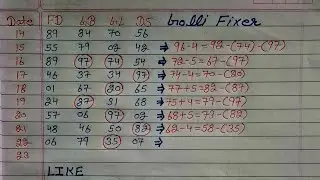 Date FD G.B G.L D.S Golli Fixer
14 89 84 70 56
15 55 79 02 42 ⇒ 96-4=92-(74)-(97)
16 89 97 74 54 ⇒ 72-5=67-(97)
17 46 37 34 97 ⇒ 74-4=70-(20)
18 01 67 20 65 ⇒ 77+5=82-(87)
19 24 37 31 68 ⇒ 75+4=79-(97)
20 57 06 97 02 ⇒ 68+5=79-(82)
21 48 46 50 82 ⇒ 62-4=58-(35)
22 06 79 35 07 ⇒
23
LIKE